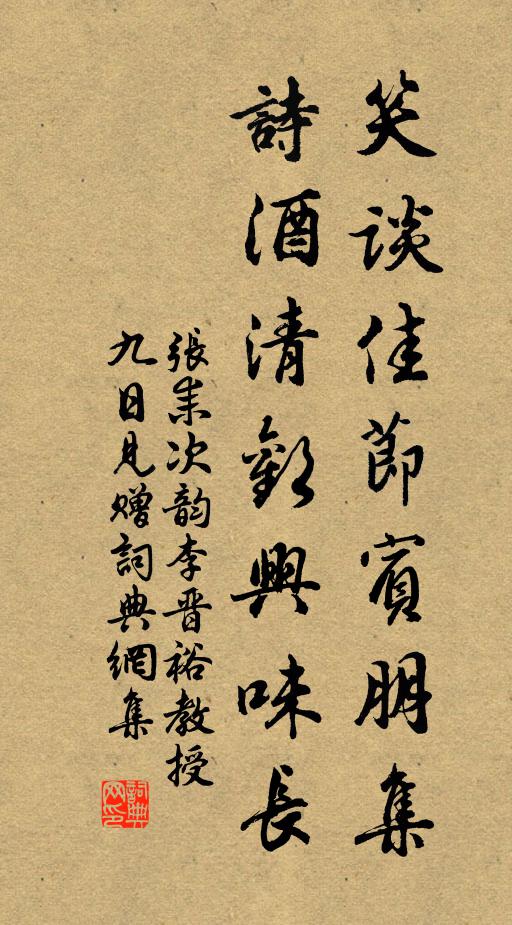 笑談佳節賓朋集
詩酒清歡興味長
張耒次韵李晋裕教授
九日見贈詞典網集
詞典网印